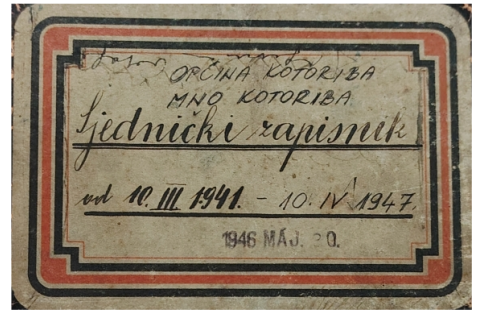 OPĆINA KOTORIBA
MNO KOTORIBA
Sjednički zapisnik
od 10. III 1941. - 10. IV 1947.
1946 MÁJ. 0.